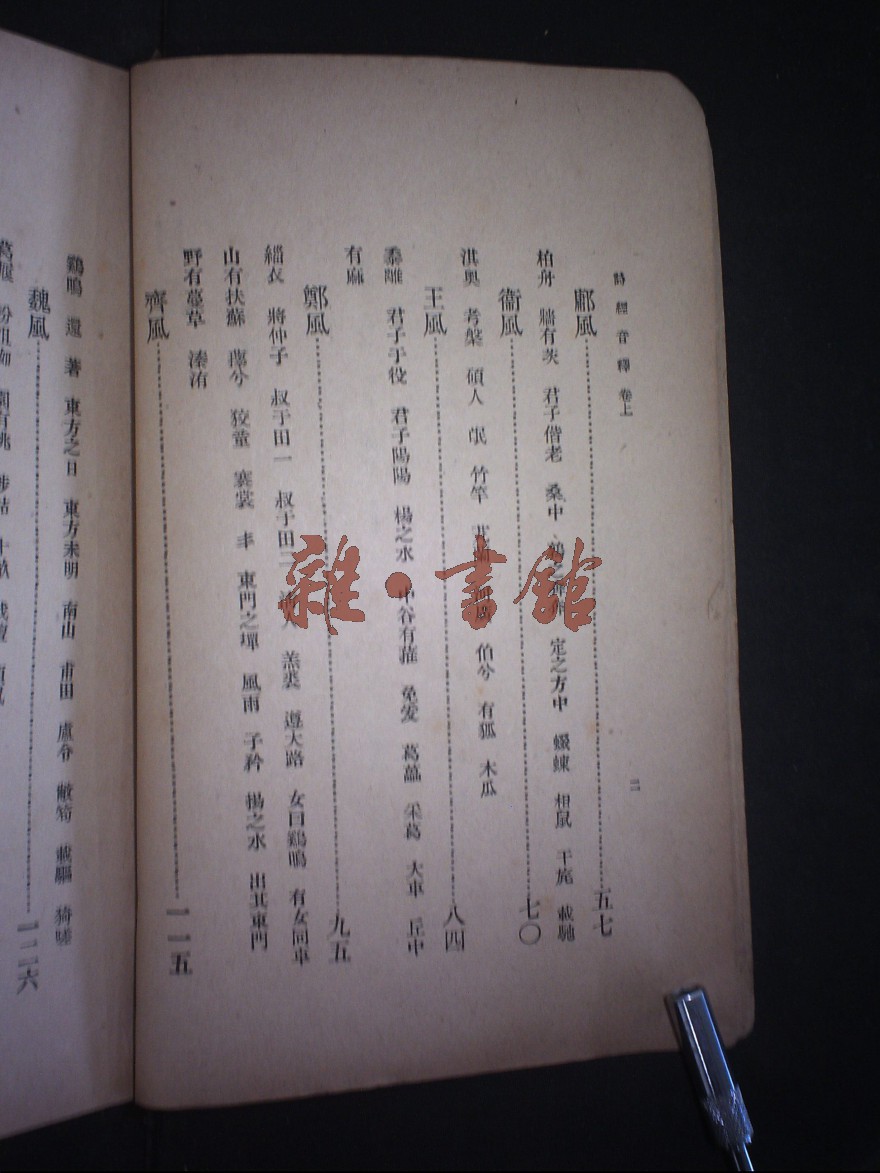 詩經音釋 卷上
二
鄘風 五七
柏舟 牆有茨 君子偕老 桑中 鶉之奔奔 定之方中 蝃蝀 相鼠 干旄 載馳
衞風 七〇
淇奧 考槃 碩人 氓 竹竿 伯兮 有狐 木瓜
王風 八四
黍離 君子于役 君子陽陽 楊之水 中谷有蓷 兔爰 葛藟 采葛 大車 丘中
有麻
鄭風 九五
緇衣 將仲子 叔于田一 叔于田二 清人 羔裘 遵大路 女曰鷄鳴 有女同車
山有扶蘇 蘀兮 狡童 褰裳 丰 東門之墠 風雨 子衿 揚之水 出其東門
野有蔓草 溱洧
齊風 一一五
鷄鳴 還 著 東方之日 東方未明 南山 甫田 盧令 敝笱 載驅 猗嗟
魏風 一二六
雜·書館